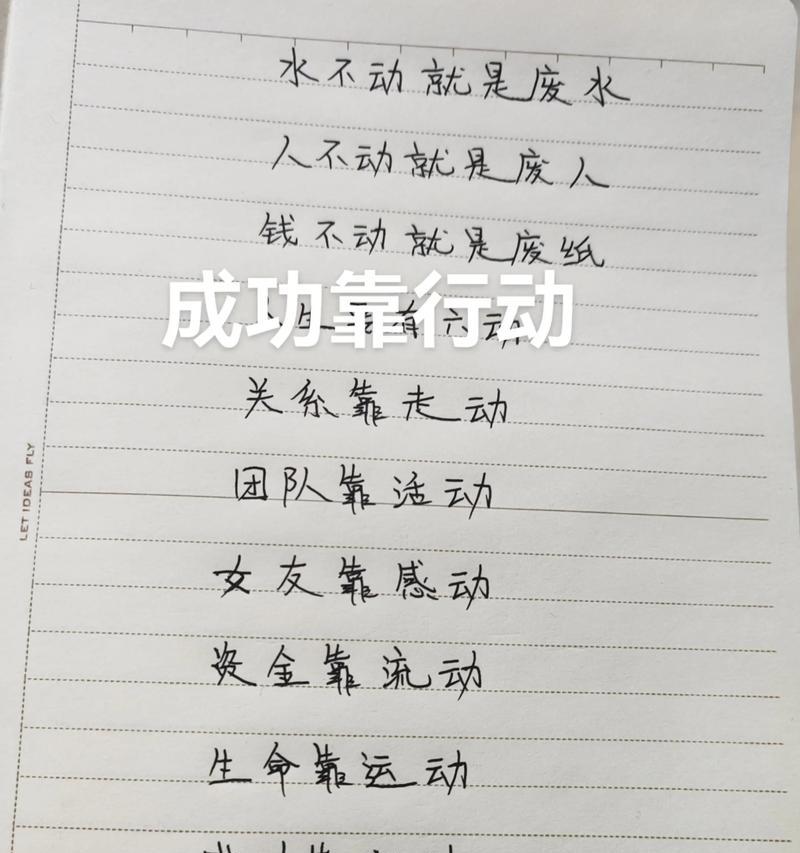 水不动就是废水
人不动就是废人
钱不动就是废纸
成功靠行动
关系靠走动
团队靠活动
女友靠感动
资金靠流动
生命靠运动
LET IDEAS FLY